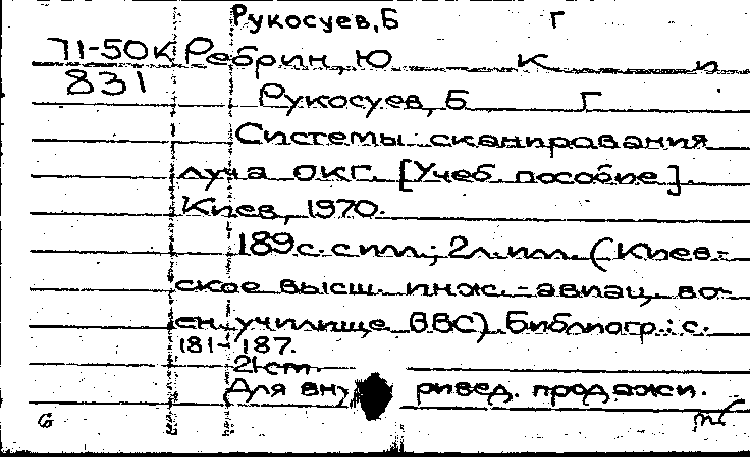 Рукосуев, Б Г
71-50К Ребрин, Ю К и
831
Рукосуев, Б Г
Системы сканирования
луча ОКГ. [Учеб. пособие].
Киев, 1970.
189 с. с ил.; 2 л. ил. (Киев-
ское высш. инж.-авиац. во-
ен. училище ВВС). Библиогр.: с.
181-187.
21 cm.
Для вну ривед. продажи.
6